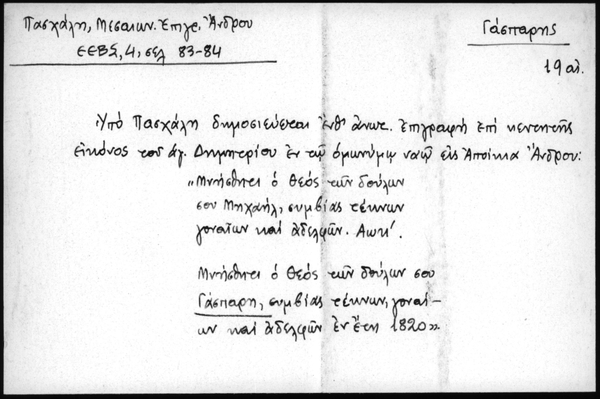 Πασχάλη, Μεσαιων. Ἐπιγρ. Ἄνδρου
ΕΕΒΣ, 4, σελ 83-84
Γάσπαρης
19 αἰ.
Ὑπό Πασχάλη δημοσιεύεται ἔνθ' ἀνωτ. ἐπιγραφή ἐπί κεντητῆς
εἰκόνος τοῦ ἁγ. Δημητρίου ἐν τῷ ὁμωνύμῳ ναῷ εἰς Ἀποίκια Ἄνδρου:
"Μνήσθητι ὁ Θεός τῶν δούλων
σου Μηχαήλ, συμβίας τέκνων
γοναίων καί ἀδελφῶν. Αωκ'.
Μνήσθητι ὁ Θεός τῶν δούλων σου
Γάσπαρη, συμβίας τέκνων, γοναί-
ων καί ἀδελφῶν ἐν ἔτη 1820».